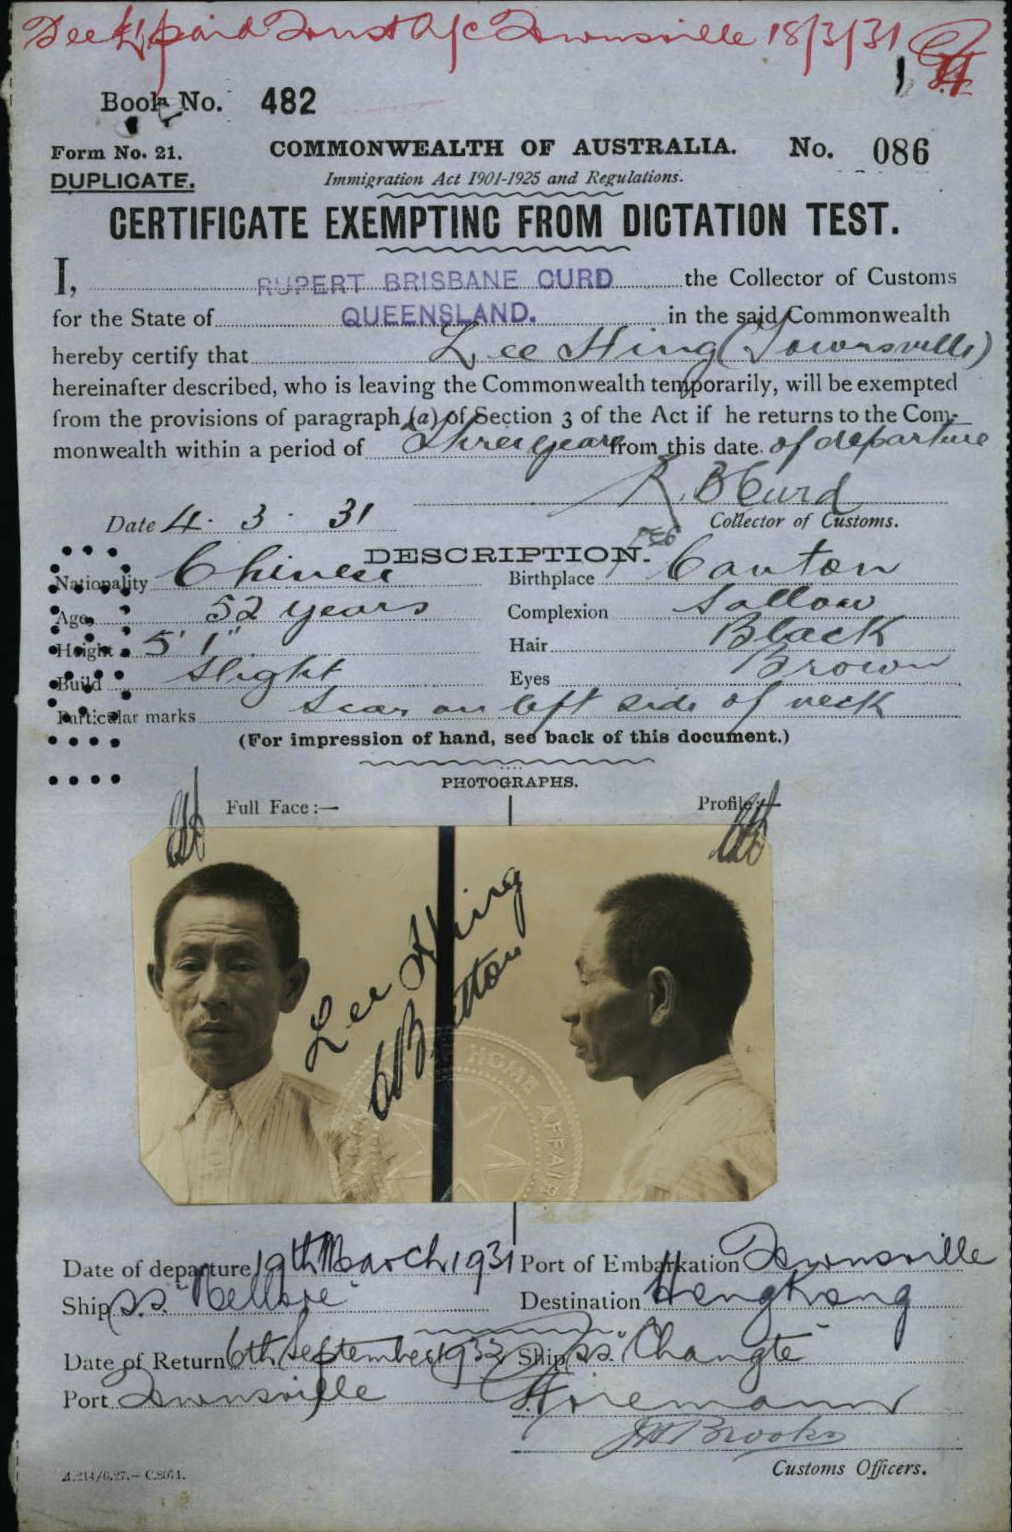 Fee £1 paid Trust A/c Townsville 18/3/31
Book No. 482
Form No. 21.
COMMONWEALTH OF AUSTRALIA.
No. 086
DUPLICATE.
Immigration Act 1901-1925 and Regulations.
CERTIFICATE EXEMPTING FROM DICTATION TEST.
I, RUPERT BRISBANE CURD the Collector of Customs
for the State of QUEENSLAND. in the said Commonwealth
hereby certify that Lee Hing (Townsville)
hereinafter described, who is leaving the Commonwealth temporarily, will be exempted
from the provisions of paragraph (a) of Section 3 of the Act if he returns to the Com-
monwealth within a period of Three years from this date of departure
R. B Curd
Date 4. 3. 31
Collector of Customs.
DESCRIPTION.
Nationality Chinese Birthplace Canton
Age 52 years Complexion Sallow
Height 5' 1" Hair Black
Build Slight Eyes Brown
Particular marks Scar on left side of neck
(For impression of hand, see back of this document.)
PHOTOGRAPHS.
Full Face:— Profile:—
Lee Hing
HOME AFFAIRS
Date of departure 19th March 1931 Port of Embarkation Townsville
Ship S.S. "Nellore" Destination HongKong
Date of Return 6th September 1932 Ship S.S. "Changte"
Port Townsville
J H Brooks
Customs Officers.